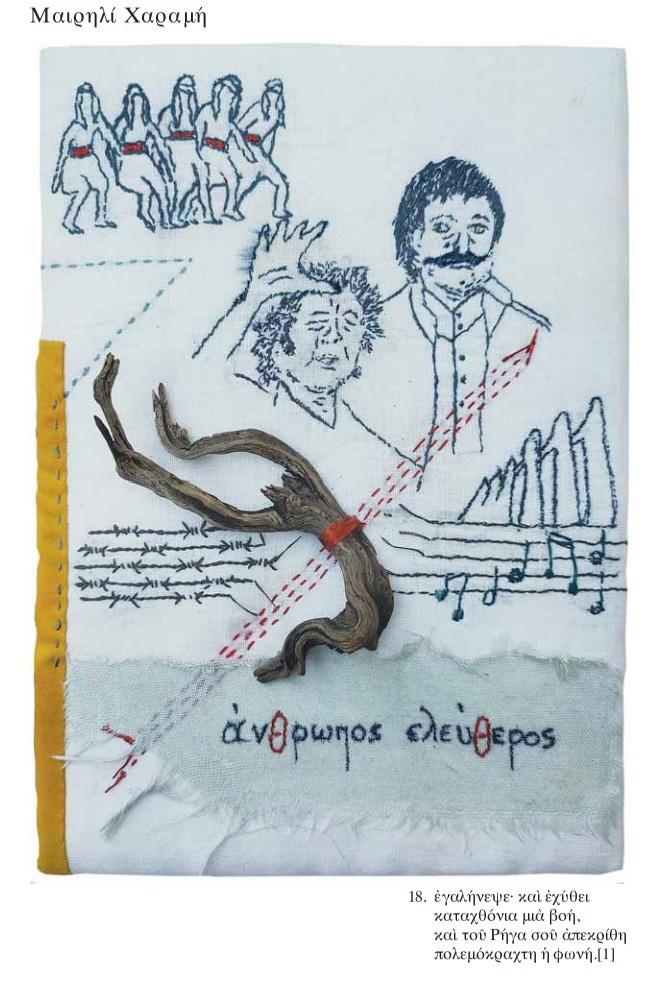 Μαιρηλί Χαραμή
ἄνθρωπος ελεύθερος
18. ἐγαλήνεψε· καὶ ἐχύθει
καταχθόνια μιὰ βοή,
καὶ τοῦ Ρήγα σοῦ ἀπεκρίθη
πολεμόκραχτη ἡ φωνή.[1]